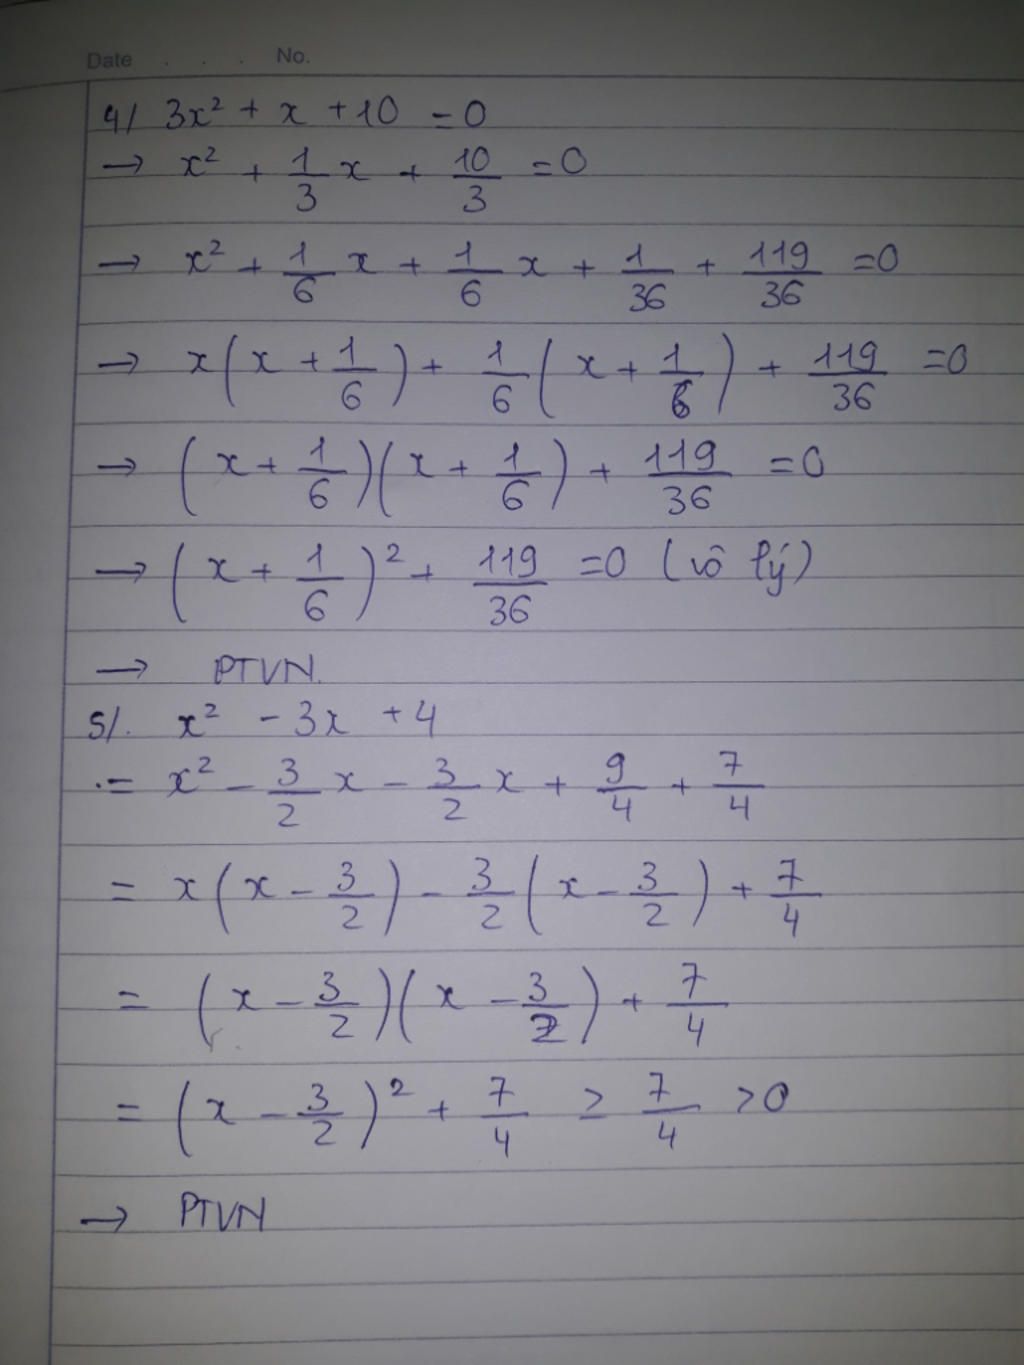 Date . . . No.
4/ 3x² + x + 10 = 0
→ x² + 1/3 x + 10/3 = 0
→ x² + 1/6 x + 1/6 x + 1/36 + 119/36 = 0
→ x(x + 1/6) + 1/6 (x + 1/6) + 119/36 = 0
→ (x + 1/6)(x + 1/6) + 119/36 = 0
→ (x + 1/6)² + 119/36 = 0 (vô lý)
→ PTVN.
5/. x² - 3x + 4
= x² - 3/2 x - 3/2 x + 9/4 + 7/4
= x(x - 3/2) - 3/2 (x - 3/2) + 7/4
= (x - 3/2)(x - 3/2) + 7/4
= (x - 3/2)² + 7/4 ≥ 7/4 > 0
→ PTVN